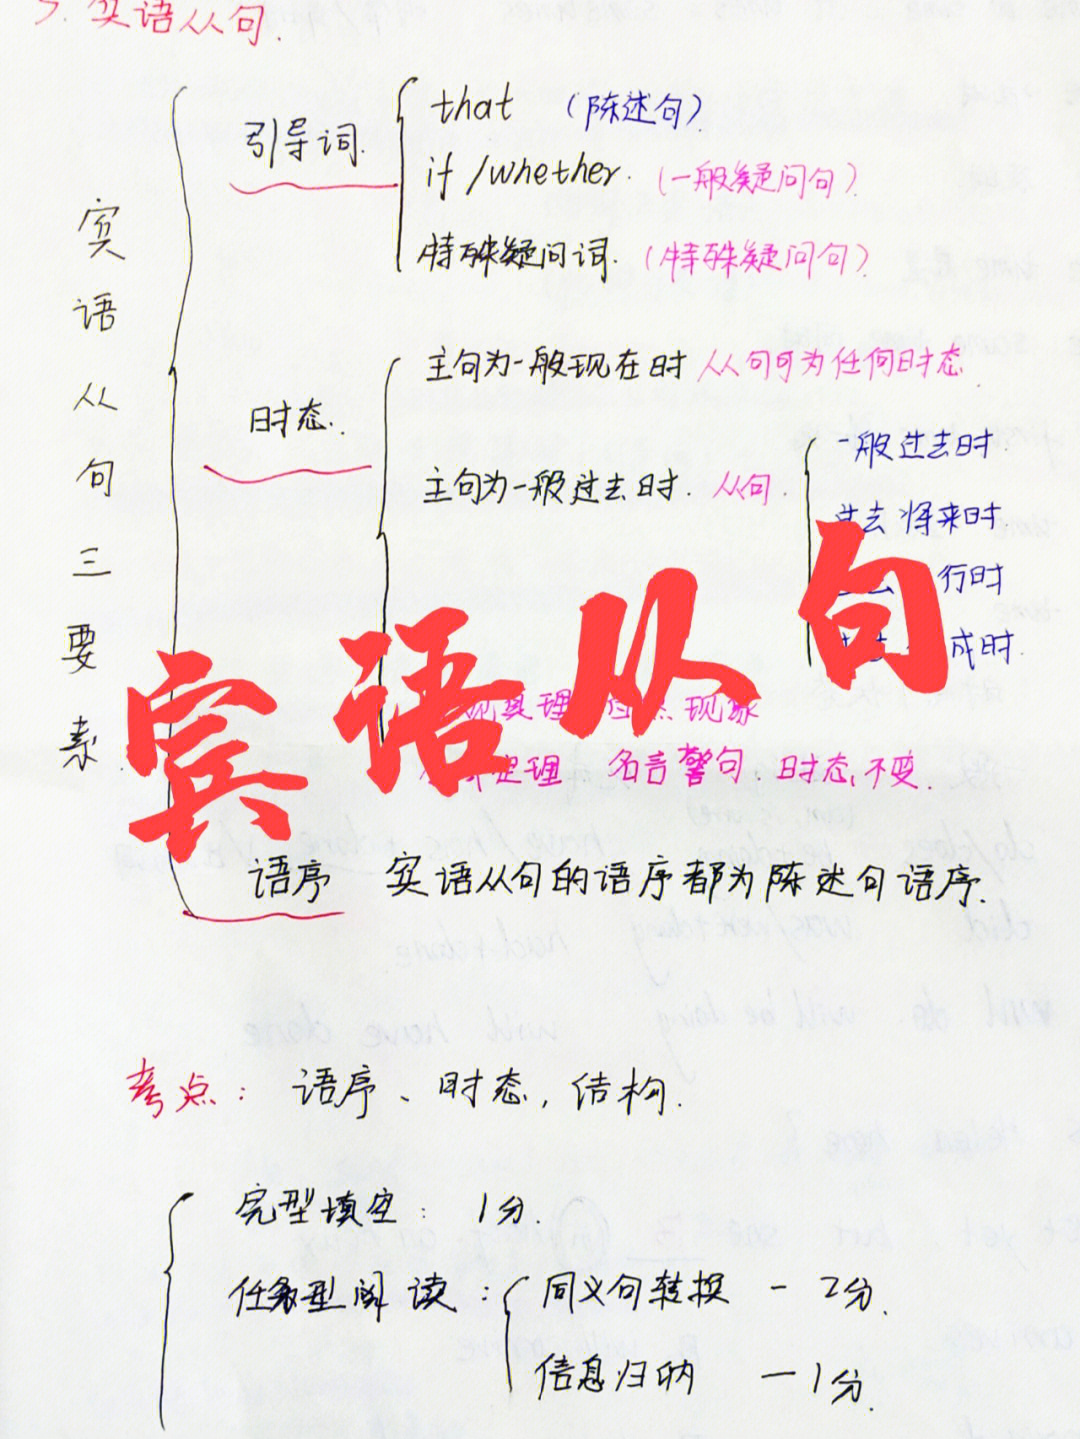 宾语从句.
宾语从句三要素
引导词.
that （陈述句）
if /whether. （一般疑问句）
特殊疑问词. （特殊疑问句）
时态.
主句为一般现在时 从句可为任何时态.
主句为一般过去时. 从句.
一般过去时
过去将来时
行时
成时.
真理 现象
定理 名言警句 时态不变.
宾语从句
语序 宾语从句的语序都为陈述句语序.
考点: 语序、时态, 结构.
完型填空: 1分.
任务型阅读:
同义句转换 - 2分.
信息归纳 - 1分.